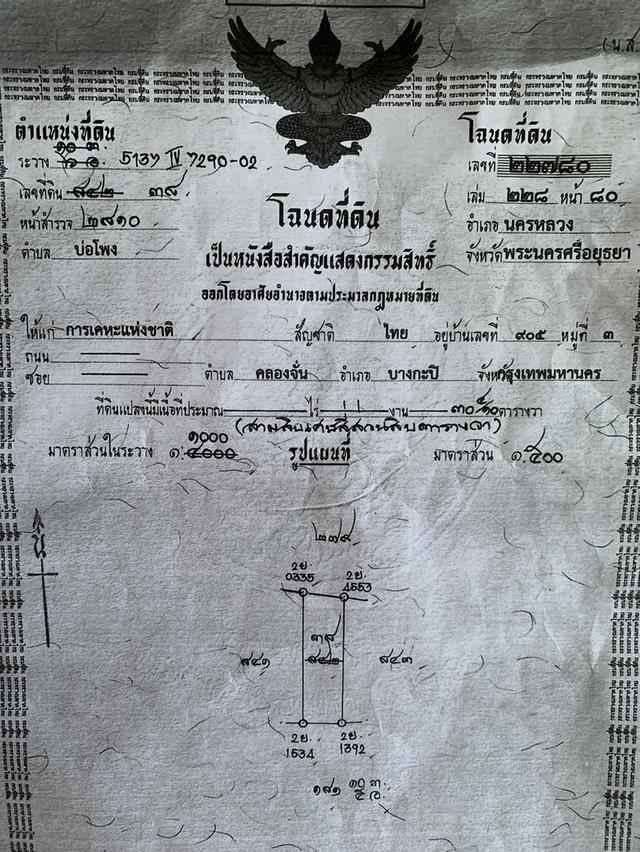 (น.ส.
ตำแหน่งที่ดิน
ระวาง 5137 IV 7290-02
เลขที่ดิน ๘๔๒ ๓๘
หน้าสำรวจ ๒๘๑๐
ตำบล บ่อโพง
โฉนดที่ดิน
เลขที่ ๒๒๗๘๐
เล่ม ๒๒๘ หน้า ๘๐
อำเภอ นครหลวง
จังหวัด พระนครศรีอยุธยา
โฉนดที่ดิน
เป็นหนังสือสำคัญแสดงกรรมสิทธิ์
ออกโดยอาศัยอำนาจตามประมวลกฎหมายที่ดิน
ให้แก่ การเคหะแห่งชาติ สัญชาติ ไทย อยู่บ้านเลขที่ ๙๐๕ หมู่ที่ ๓
ถนน
ซอย ตำบล คลองจั่น อำเภอ บางกะปิ จังหวัด กรุงเทพมหานคร
ที่ดินแปลงนี้มีเนื้อที่ประมาณ ไร่ งาน ตารางวา
๑๐๐๐
มาตราส่วนในระวาง ๑:๔๐๐๐ รูปแผนที่ มาตราส่วน ๑:๕๐๐
น
๒๗๙
2ย. 2ย.
0335 4553
๓๘
๘๔๑ ๘๔๒ ๘๔๓
2ย. 2ย.
1534 1392